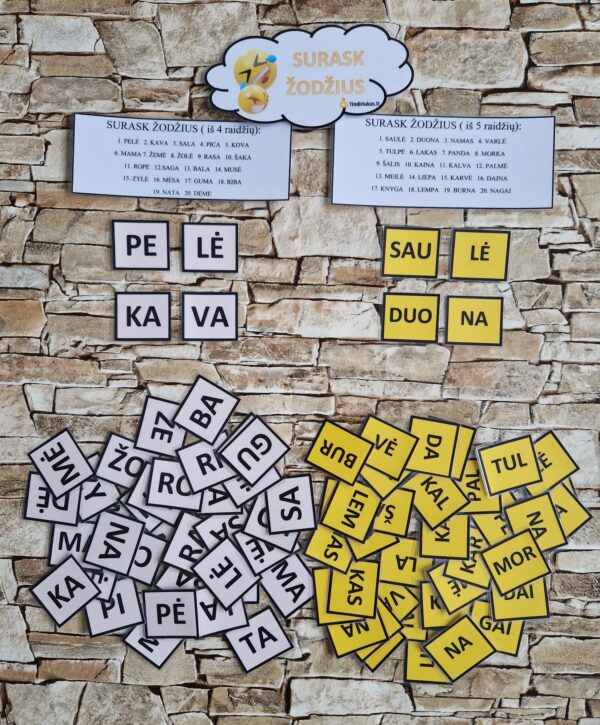 SURASK
ŽODŽIUS
Tindirinkas.lt
SURASK ŽODŽIUS ( iš 4 raidžių):
1. PELĖ 2. KAVA 3. SALA 4. PICA 5. KOVA
6. MAMA 7. ŽEMĖ 8. ŽOLĖ 9. RASA 10. ŠAKA
11. ROPĖ 12.SAGA 13. BALA 14. MUSĖ
15. ZYLĖ 16. MĖSA 17. GUMA 18. RIBA
19. NATA 20. DĖMĖ
SURASK ŽODŽIUS ( iš 5 raidžių):
1. SAULĖ 2. DUONA 3. NAMAS 4. VARLĖ
5. TULPĖ 6. LAKAS 7. PANDA 8. MORKA
9. ŠALIS 10. KAINA 11. KALVA 12. PALMĖ
13. MEILĖ 14. LIEPA 15. KARVĖ 16. DAINA
17. KNYGA 18. LEMPA 19. BURNA 20. NAGAI
PE LĖ
KA VA
SAU LĖ
DUO NA
BA
ZE
GU
MĖ
ŽO
RO
SA
NA
LĖ
MA
KA
PI
PĖ
TA
BUR
VĖ
DA
TUL
LEM
KAL
PA
NA
MOR
KAS
LA
VA
DAI
GAI
NA
NA